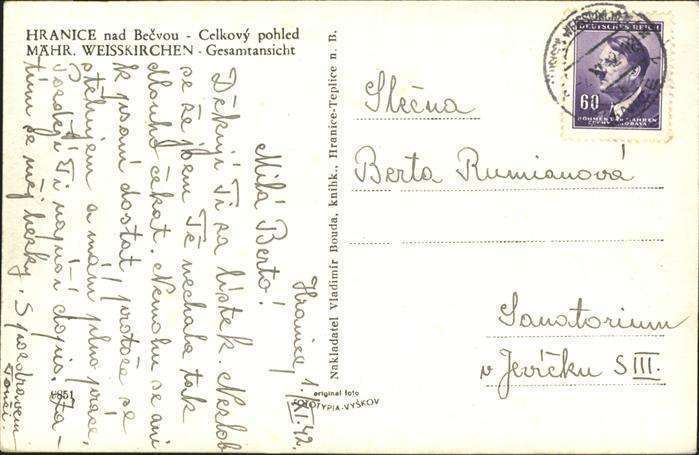 HRANICE nad Bečvou - Celkový pohled
MÄHR. WEISSKIRCHEN - Gesamtansicht
Hranice, 1./XI. 42.
Milá Berto!
Děkuji Ti za lístek. Nezlob
se že jsem Tě nechala tak
dlouho čekat. Nemohu se ani
k psaní dostat, protože se
stěhujem a mám plno práce,
Později Ti napíši dopis. Za-
tím se měj hezky. S pozdravem
Nakladatel Vladimír Bouda, knihk., Hranice-Teplice n. B.
original foto
FOTOTYPIA-VYŠKOV
DEUTSCHES REICH
60
BÖHMEN UND MÄHREN
ČECHY A MORAVA
Slečna
Berta Rumianová
Sanatorium
v Jevíčku S III.